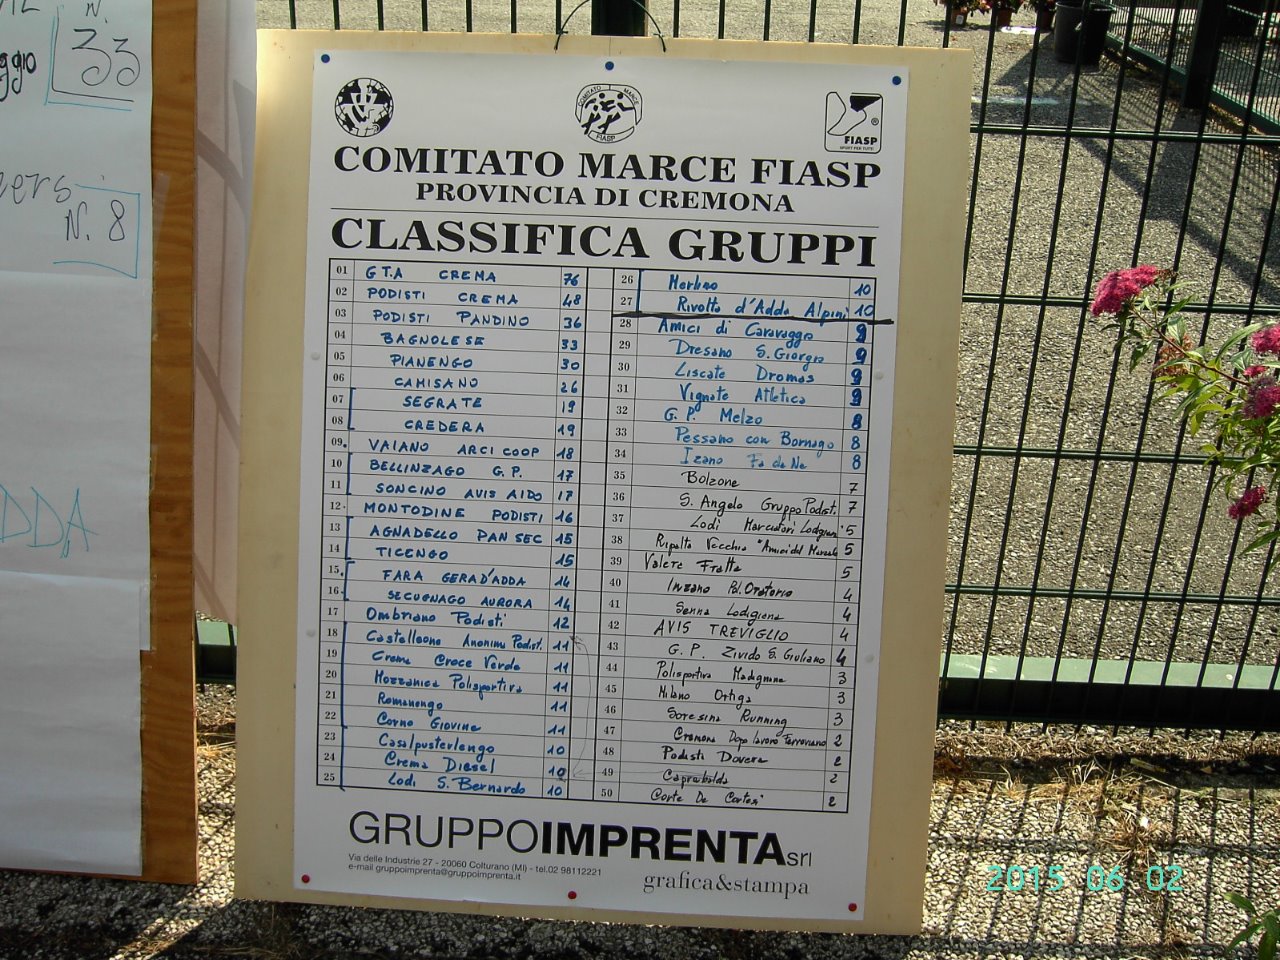 N.
33
ggio
eers
N. 8
DDA
COMITATO MARCE
FIASP
FIASP
SPORT PER TUTTI
COMITATO MARCE FIASP
PROVINCIA DI CREMONA
CLASSIFICA GRUPPI
01 G.T.A CREMA 76
02 PODISTI CREMA 48
03 PODISTI PANDINO 36
04 BAGNOLESE 33
05 PIANENGO 30
06 CAMISANO 26
07 SEGRATE 19
08 CREDERA 19
09 VAIANO ARCI COOP 18
10 BELLINZAGO G.P. 17
11 SONCINO AVIS AIDO 17
12 MONTODINE PODISTI 16
13 AGNADELLO PAN SEC 15
14 TICENGO 15
15 FARA GERA D'ADDA 14
16 SECUGNAGO AURORA 14
17 Ombriano Podisti 12
18 Castelleone Anonima Podist. 11
19 Crema Croce Verde 11
20 Mozzanica Polisportiva 11
21 Romanengo 11
22 Corno Giovine 11
23 Casalpusterlengo 10
24 Crema Diesel 10
25 Lodi S. Bernardo 10
26 Merlino 10
27 Rivolta d'Adda Alpini 10
28 Amici di Caravaggio 9
29 Dresano S. Giorgio 9
30 Liscate Dromos 9
31 Vignate Atletica 9
32 G. P. Melzo 8
33 Pessano con Bornago 8
34 Izano Fa da Na 8
35 Bolzone 7
36 S. Angelo Gruppo Podist. 7
37 Lodi Marciatori Lodigiani 5
38 Ripalta Vecchia "Amici del 5
39 Valere Fratta 5
40 Inzago Pol. Oratorio 4
41 Senna Lodigiana 4
42 AVIS TREVIGLIO 4
43 G. P. Zivido S. Giuliano 4
44 Polisportiva Madignano 3
45 Milano Ortiga 3
46 Soresina Running 3
47 Cremona Dopo lavoro Ferroviario 2
48 Podisti Dovera 2
49 Capralbalda 2
50 Corte De Cortesi 2
GRUPPOIMPRENTAsrl
Via delle Industrie 27 - 20060 Colturano (MI) - tel.02 98112221
e-mail gruppoimprenta@gruppoimprenta.it
grafica&stampa
2015 06 02